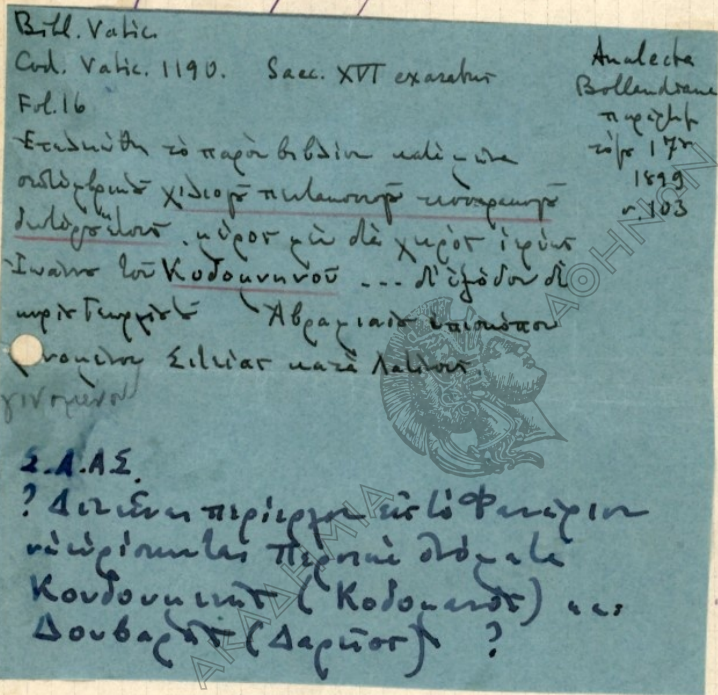 Bibl. Vatic.
Cod. Vatic. 1190. Saec. XVI exaratus
Fol. 16
Analecta
Bollandiana
παράρτημ
τόμ 17ον
1899
σ. 103
Ἐτελειώθη τὸ παρὸν βιβλίον κατὰ μῆνα
χιλιοστῷ πεντακοσιοστῷ τεσσαρακοστῷ
διὰ χειρὸς ἱερέως
Ἰωάννου τοῦ Κοδοκυνηνοῦ ... δι' ἐξόδου δὲ
κυρίου Γεωργίου Ἀβραμιαίου ἐπισκόπου
Σιτείας κατὰ Λατίνους.
γινομένου
Σ.Α.Α.Σ.
? Δὲν εἶναι περίεργον εἰς τὸ Φανάριον
νὰ εὑρίσκωνται Περσικὰ ὀνόματα
Κουδουκινὴς (Κοδομανὸς) καὶ
Δουβαρᾶς (Δαρεῖος) ?
ΑΚΑΔΗΜΙΑ ΑΘΗΝΩΝ